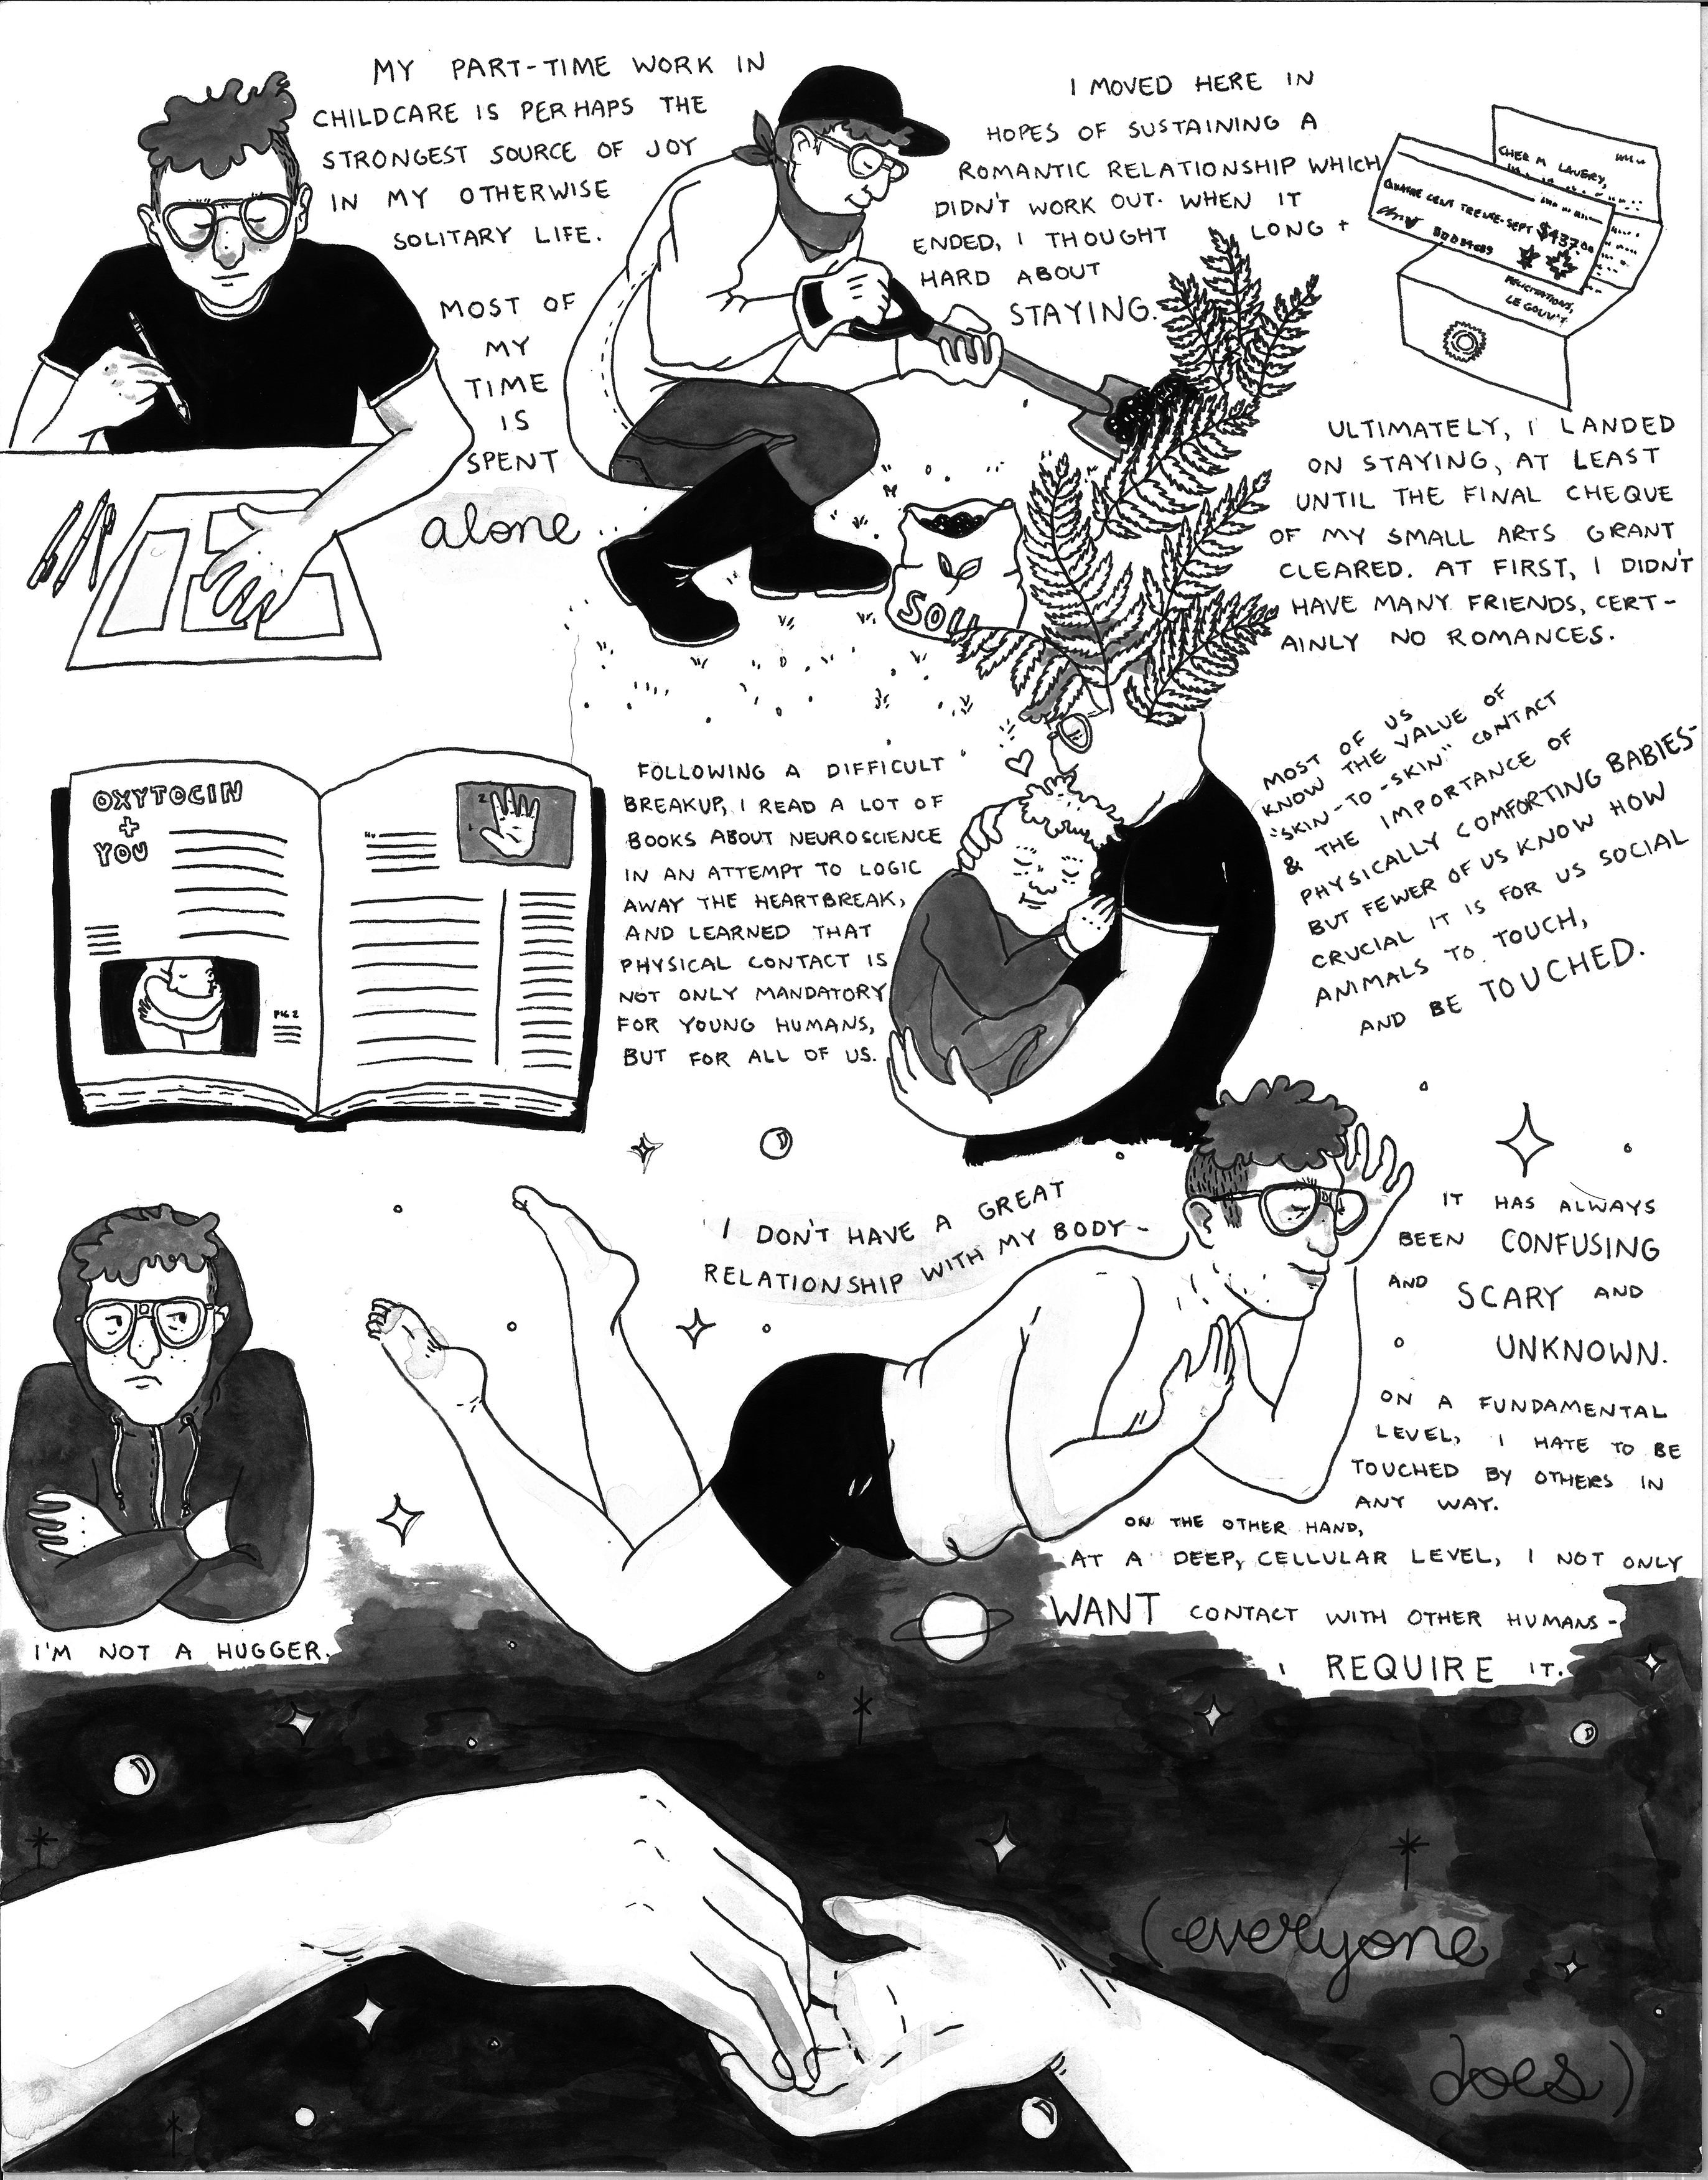 MY PART-TIME WORK IN
CHILDCARE IS PERHAPS THE
STRONGEST SOURCE OF JOY
IN MY OTHERWISE
SOLITARY LIFE.
MOST OF
MY
TIME
IS
SPENT
alone
I MOVED HERE IN
HOPES OF SUSTAINING A
ROMANTIC RELATIONSHIP WHICH
DIDN'T WORK OUT. WHEN IT
ENDED, I THOUGHT LONG +
HARD ABOUT
STAYING.
CHER M LAVERY,
QUATRE CENT TRENTE-SEPT $437.00
FELICITATIONS,
LE GOUV'T
SOIL
ULTIMATELY, I LANDED
ON STAYING, AT LEAST
UNTIL THE FINAL CHEQUE
OF MY SMALL ARTS GRANT
CLEARED. AT FIRST, I DIDN'T
HAVE MANY FRIENDS, CERT-
AINLY NO ROMANCES.
OXYTOCIN
+
YOU
FIG 2
2
FOLLOWING A DIFFICULT
BREAKUP, I READ A LOT OF
BOOKS ABOUT NEUROSCIENCE
IN AN ATTEMPT TO LOGIC
AWAY THE HEARTBREAK,
AND LEARNED THAT
PHYSICAL CONTACT IS
NOT ONLY MANDATORY
FOR YOUNG HUMANS,
BUT FOR ALL OF US.
MOST OF US
KNOW THE VALUE OF
"SKIN-TO-SKIN" CONTACT
& THE IMPORTANCE OF
PHYSICALLY COMFORTING BABIES-
BUT FEWER OF US KNOW HOW
CRUCIAL IT IS FOR US SOCIAL
ANIMALS TO TOUCH,
AND BE TOUCHED.
I'M NOT A HUGGER.
I DON'T HAVE A GREAT
RELATIONSHIP WITH MY BODY-
IT HAS ALWAYS
BEEN CONFUSING
AND SCARY AND
UNKNOWN.
ON A FUNDAMENTAL
LEVEL, I HATE TO BE
TOUCHED BY OTHERS IN
ANY WAY.
ON THE OTHER HAND,
AT A DEEP, CELLULAR LEVEL, I NOT ONLY
WANT CONTACT WITH OTHER HUMANS-
I REQUIRE IT.
(everyone
does)